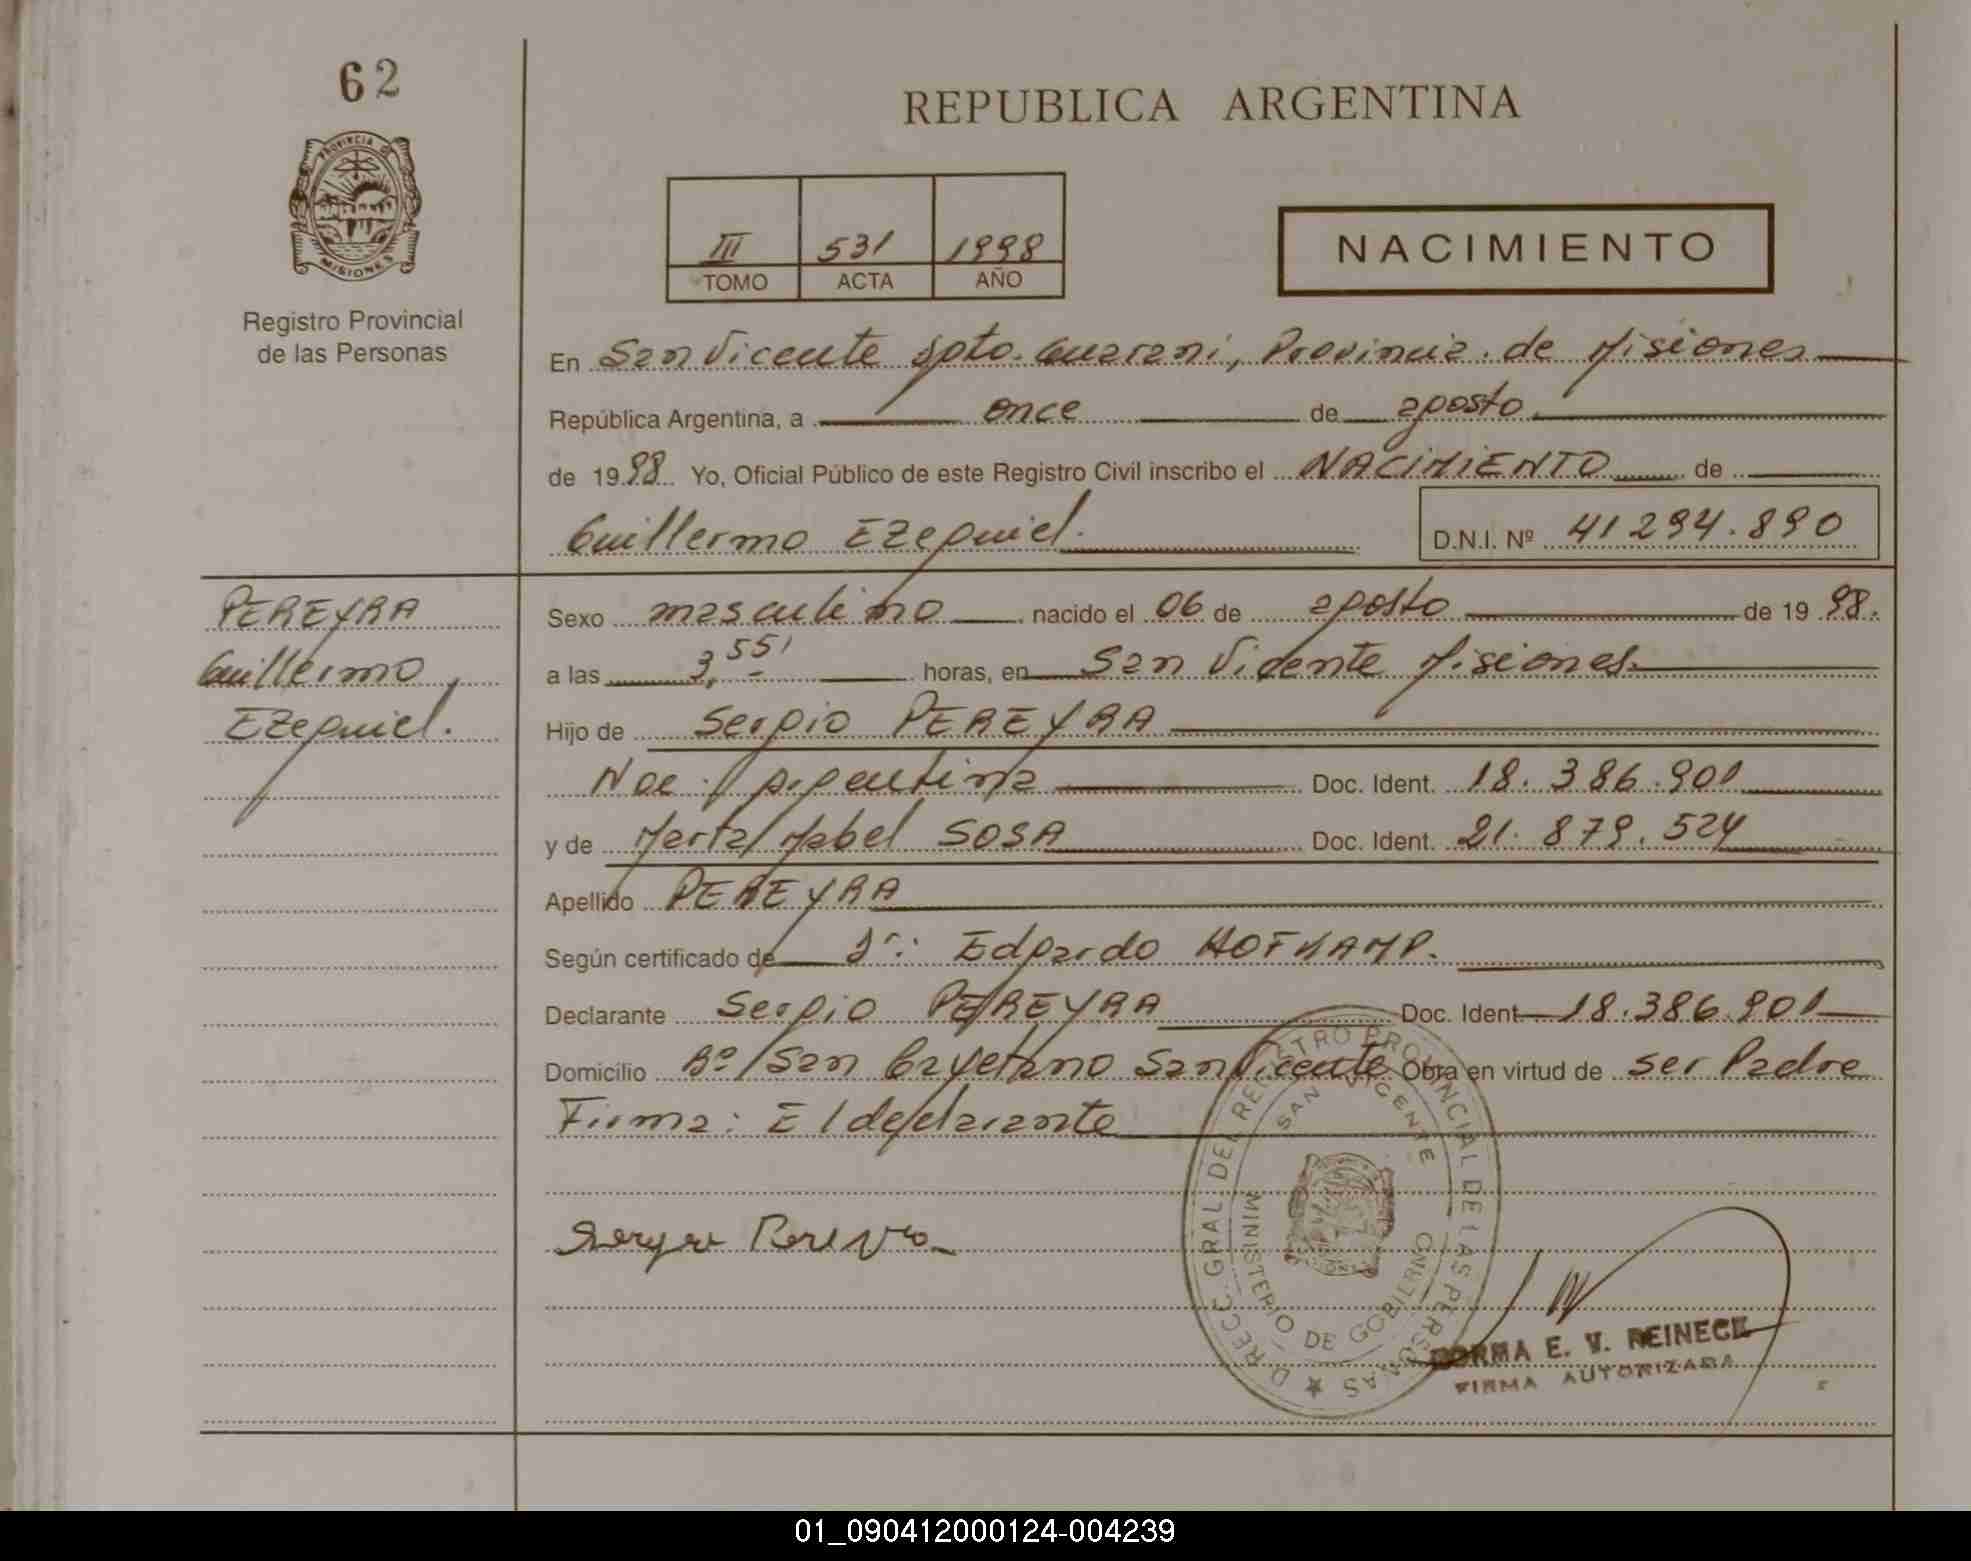 62
REPUBLICA ARGENTINA
PROVINCIA DE
MISIONES
Registro Provincial
de las Personas
III 531 1998
TOMO ACTA AÑO
NACIMIENTO
En San Vicente Dpto. Guarani, Provincia de Misiones
República Argentina, a once de agosto
de 1998 Yo, Oficial Público de este Registro Civil inscribo el NACIMIENTO de
Guillermo Ezequiel.
D.N.I. Nº 41294.890
PEREYRA
Guillermo
Ezequiel.
Sexo masculino nacido el 06 de agosto de 1998.
a las 3,55' horas, en San Vicente Misiones.
Hijo de Sergio PEREYRA
Nac. Argentina Doc. Ident. 18.386.901
y de Marta Mabel SOSA Doc. Ident. 21.879.524
Apellido PEREYRA
Según certificado de Dr: Edgardo HOFKAMP.
Declarante Sergio PEREYRA Doc. Ident 18.386.901
Domicilio Bº San Cayetano San Vicente Obra en virtud de ser Padre
Firma: El declarante
DIRECC. GRAL DEL REGISTRO PROVINCIAL DE LAS PERSONAS
SAN VICENTE
MINISTERIO DE GOBIERNO
NORMA E. V. REINECK
FIRMA AUTORIZADA
01_090412000124-004239